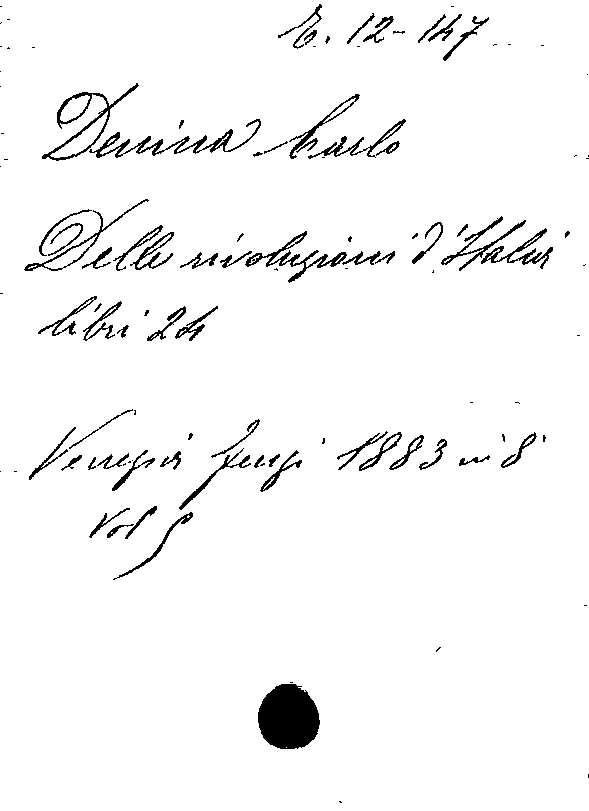 E. 12-147
Denina Carlo
Delle rivoluzioni d'Italia
libri 24
Venezia 1883 in 8
Vol 5